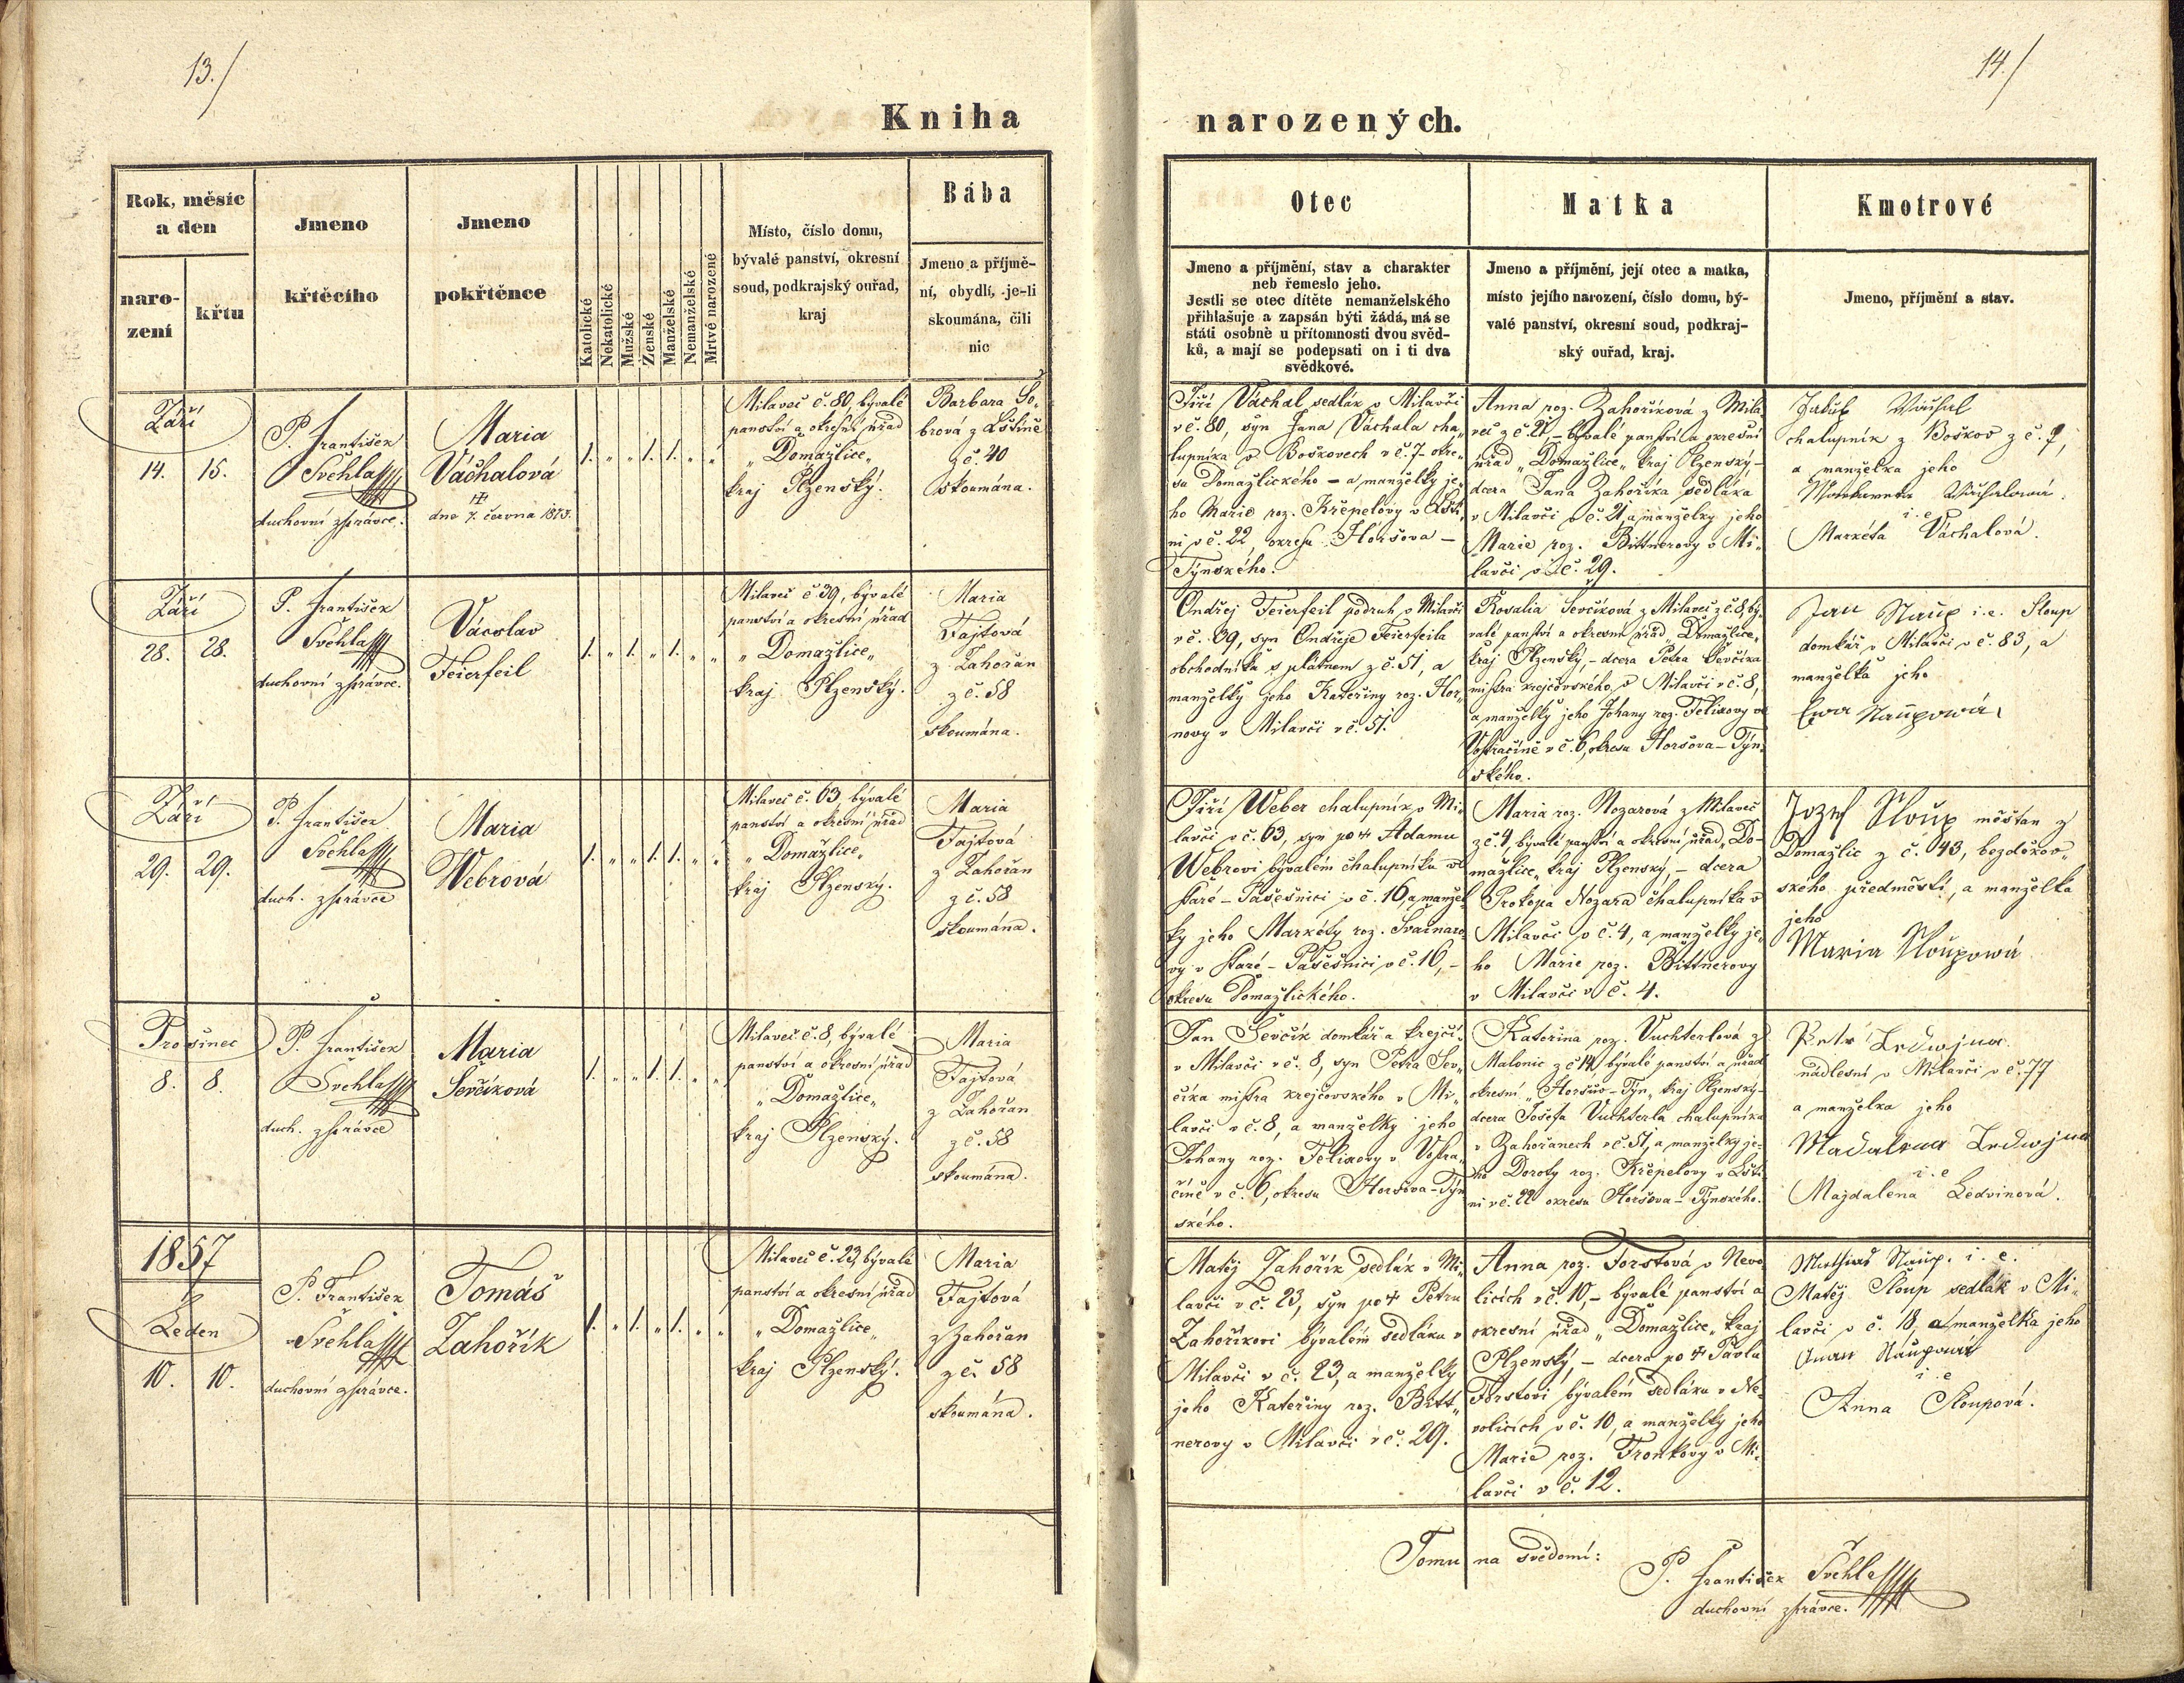 13./
Kniha
Rok, měsíc
a den
naro-
zení
křtu
Jmeno
křtěcího
Jmeno
pokřtěnce
Katolické
Nekatolické
Mužské
Ženské
Manželské
Nemanželské
Mrtvě narozené
Místo, číslo domu,
bývalé panství, okresní
soud, podkrajský ouřad,
kraj
Bába
Jmeno a příjmě-
ní, obydlí, je-li
skoumána, čili
nic
Září
14. 15.
P. František
Švehla
duchovní zpráwce.
Maria
Váchalová
dne 7. června 1873.
1. „ „ 1. 1. „ „
Milaveč č. 80, bývalé
panství a okresní úřad
„Domažlice„
kraj Plzenský.
Barbara Še-
brová z Lštině
z č. 40
skoumána.
Září
28. 28.
P. František
Švehla
duchovní zpráwce.
Václav
Feierfeil
1. „ 1. „ 1. „ „
Milaveč č 39, bývalé
panství a okresní úřad
„Domažlice„
kraj Plzenský.
Maria
Fajtová
z Zahořan
z č. 58
skoumána.
Září
29. 29.
P. František
Švehla
duch. zpráwce
Maria
Webrová
1. „ „ 1. 1. „ „
Milaveč č. 63, bývalé
panství a okresní úřad
„Domažlice„
kraj Plzenský.
Maria
Fajtová
z Zahořan
z č. 58
skoumána.
Prosinec
8. 8.
P. František
Švehla
duch. zpráwce
Maria
Ševčíková
1. „ „ 1. 1. „ „
Milaveč č. 8, bývalé
panství a okresní úřad
„Domažlice„
kraj Plzenský.
Maria
Fajtová
z Zahořan
z č. 58
skoumána.
1857
Leden
10. 10.
P. František
Švehla
duchovní zpráwce.
Tomáš
Zahořík
1. „ 1. „ 1. „ „
Milaveč č. 23, bývalé
panství a okresní úřad
„Domažlice„
kraj Plzenský.
Maria
Fajtová
z Zahořan
z č. 58
skoumána.
14./
narozených.
Otec
Jmeno a příjmění, stav a charakter
neb řemeslo jeho.
Jestli se otec dítěte nemanželského
přihlašuje a zapsán býti žádá, má se
státi osobně u přítomnosti dvou svěd-
ků, a mají se podepsati on i ti dva
svědkové.
Matka
Jmeno a příjmění, její otec a matka,
místo jejího narození, číslo domu, bý-
valé panství, okresní soud, podkraj-
ský ouřad, kraj.
Kmotrové
Jmeno, příjmění a stav.
Jiří Váchal sedlák v Milavči
v č. 80, syn Jana Váchala cha-
lupníka v Boškovech v č. 7. okre-
su Domažlického – a manželky je-
ho Marie roz. Křepelovy v Lšti-
ni v č. 22, okresu Horšova –
Týnského.
Anna roz. Zahoříková z Mila-
več z č. 21, – bývalé panství a okresní
úřad „Domažlice„ kraj Plzenský –
dcera Jana Zahoříka sedláka
v Milavči v č. 21, a manželky jeho
Marie roz. Bittnerovy v Mi-
lavči v č. 29.
Jakub Váchal
chalupník z Boškov z č. 7,
a manželka jeho
i. e
Markéta Váchalová.
Ondřej Feierfeil podruh v Milavči
v č. 39, syn Ondřeje Feierfeila
obchodníka s plátnem z č. 51, a
manželky jeho Kateřiny roz. Hor-
novy v Milavči v č. 51.
Rosalia Ševčíková z Milavеč z č. 8, bý-
valé panství a okresní úřad „Domažlice„
kraj Plzenský, – dcera Petra Ševčíka
mistra krejčovského, v Milavči v č. 8,
a manželky jeho Johany roz. Felixovy ve
Vostračíně v č. 6, okresu Horšova – Týn-
ského.
Jan Slaup i. e. Sloup
domkář v Milavči v č. 83, a
manželka jeho
Ewa Slaupowá
Jiří Weber chalupník v Mi-
lavči v č. 63, syn po † Adamu
Webrovi bývalém chalupníku ve
Staré – Pasečnici v č. 16, a manžel-
ky jeho Markéty roz. Svačinaro-
vy v Staré – Pasečnici v č. 16, –
okresu Domažlického.
Maria roz. Nozarová z Milaveč
z č. 4, bývalé panství a okresní úřad „Do-
mažlice„ kraj Plzenský, – dcera
Prokopa Nozara chalupníka v
Milavči v č. 4, a manželky je-
ho Marie roz. Bittnerovy
v Milavči v č. 4.
Jozef Sloup měšťan z
Domažlic z č. 43, bezděkov-
ského předměstí, a manželka
jeho
Maria Sloupowá
Jan Ševčík domkář a krejčí
v Milavči v č. 8, syn Petra Šev-
číka mistra krejčovského v Mi-
lavči v č. 8, a manželky jeho
Johany roz. Felixovy v Vostra-
číně v č. 6, okresu Horšova – Týn-
ského.
Kateřina roz. Vuchterlová z
Malonic z č 14, bývalé panství a úřad
okresní „Horšův – Týn„ kraj Plzenský –
dcera Josefa Vuchterla chalupníka
v Zahořanech v č. 51, a manželky je-
ho Doroty roz. Křepelovy v Lšti-
ni v č. 22 okresu Horšova – Týnského.
Petr Ledwina
nádlesní v Milavči v č. 77
a manželka jeho
Madalena Ledwina
i. e
Majdalena Ledvinová.
Matěj Zahořík sedlák v Mi-
lavči v č. 23, syn po † Petru
Zahoříkovi bývalém sedláku v
Milavči v č. 23, a manželky
jeho Kateřiny roz. Bitt-
nerovy v Milavči v č. 29.
Anna roz. Forstová v Nevo-
licích v č. 10, – bývalé panství a
okresní úřad „Domažlice„ kraj
Plzenský, – dcera po † Pavlu
Forstovi bývalém sedláku v Ne-
volicích v č. 10, a manželky jeho
Marie roz. Tronkovy v Mi-
lavči v č. 12.
Mathias Slaup. i. e.
Matěj Sloup sedlák v Mi-
lavči v č. 18, a manželka jeho
Anna Slaupowá
i. e
Anna Sloupová.
Tomu na svědomí:
P. František Švehla
duchovní zpráwce.